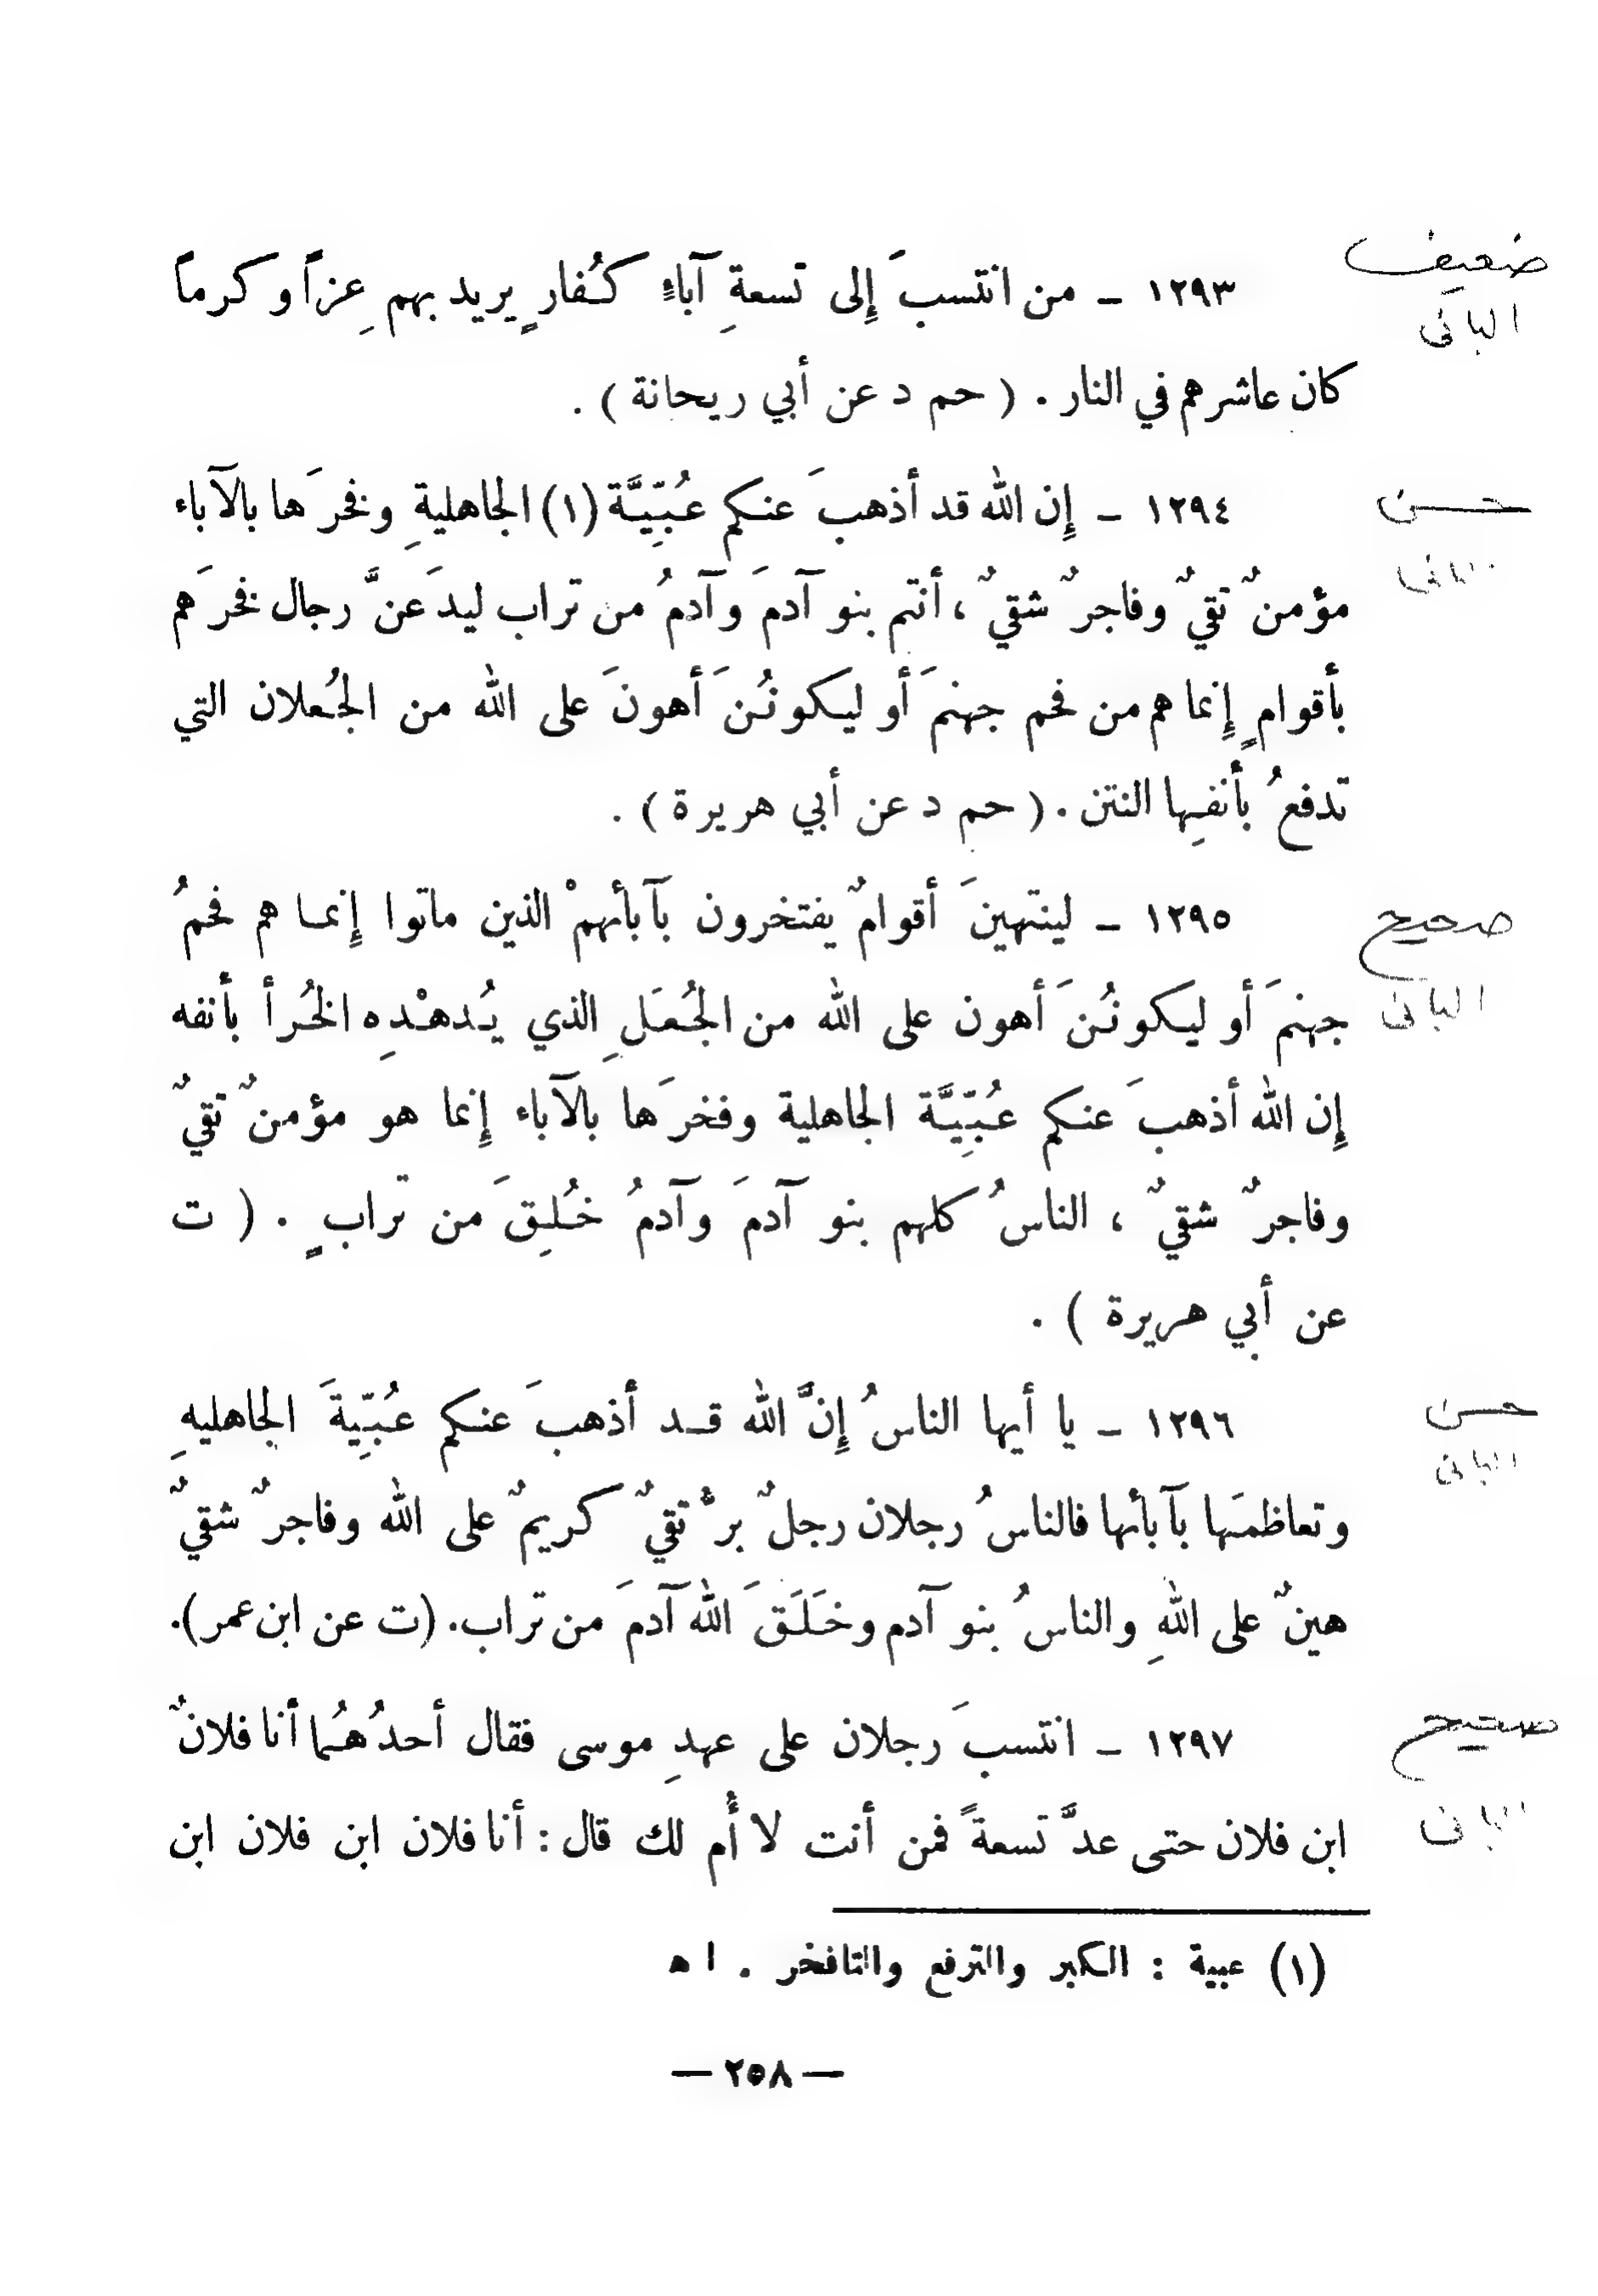 ضعيف
البانى
١٢٩٣ – من انتسبَ إِلى تسعةِ آباءٍ كُفارٍ يريد بهم عِزاً وكرماً
كان عاشرهم في النار . ( حم د عن أبي ريحانة ) .
حسن
البانى
١٢٩٤ – إِن الله قد أذهبَ عنكم عُبِّيَّة (١) الجاهليةِ وفخرَها بالآباء
مؤمنٌ تقيٌ وفاجرٌ شقيٌ ، أنتم بنو آدمَ وآدمُ من تراب ليدَعنَّ رجال فخرَهم
بأقوامٍ إِنما هم من فحم جهنمَ أو ليكونُنَ أهونَ على الله من الجُعلان التي
تدفعُ بأنفِها النتن . ( حم د عن أبي هريرة ) .
صحيح
البانى
١٢٩٥ – لينتهينَ أقوامٌ يفتخرون بآبائهمْ الذين ماتوا إِنما هم فحمُ
جهنمَ أو ليكونُنَ أهون على الله من الجُعَلِ الذي يُدهْدِه الخُرأ بأنفه
إِن الله أذهبَ عنكم عُبِّيَّة الجاهلية وفخرَها بالآباء إِنما هو مؤمنٌ تقيٌ
وفاجرٌ شقيٌ ، الناسُ كلهم بنو آدمَ وآدمُ خُلِقَ من ترابٍ . ( ت
عن أبي هريرة ) .
حسن
البانى
١٢٩٦ – يا أيها الناسُ إِنَّ الله قد أذهبَ عنكم عُبِّيةَ الجاهليهِ
وتعاظمَها بآبائها فالناسُ رجلان رجلٌ برٌّ تقيٌ كريمٌ على الله وفاجرٌ شقيٌ
هينٌ على اللهِ والناسُ بنو آدم وخَلَقَ الله آدمَ من تراب. (ت عن ابن عمر).
صحيح
البانى
١٢٩٧ – انتسبَ رجلان على عهدِ موسى فقال أحدُهُما أنا فلانٌ
ابن فلان حتى عدَّ تسعةً فمن أنت لا أُم لك قال : أنا فلان ابن فلان ابن
(١) عبية : الكبر والترفع والتافخر . ا هـ
— ٢٥٨ —